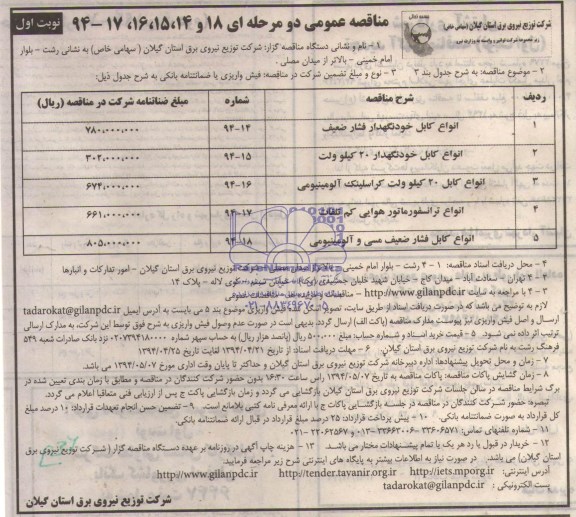 شرکت توزیع نیروی برق استان گیلان (سهامی خاص)
مناقصه عمومی دو مرحله ای ۱۸ و ۱۶،۱۵،۱۴، ۱۷ -۹۴
نوبت اول
۱ - نام و نشانی دستگاه مناقصه گزار: شرکت توزیع نیروی برق استان گیلان ( سهامی خاص) به نشانی رشت - بلوار
امام خمینی - بالاتر از میدان مصلی .
۲ - موضوع مناقصه: به شرح جدول بند ۳ ۳ - نوع و مبلغ تضمین شرکت در مناقصه: فیش واریزی یا ضمانتنامه بانکی به شرح جدول ذیل:
ردیف شرح مناقصه شماره مبلغ ضنانتنامه شرکت در مناقصه (ریال)
۱ انواع کابل خودنگهدار فشار ضعیف ۹۴-۱۴ ۷۸۰,۰۰۰,۰۰۰
۲ انواع کابل خودنگهدار ۲۰ کیلو ولت ۹۴-۱۵ ۳۰۲,۰۰۰,۰۰۰
۳ انواع کابل ۲۰ کیلو ولت کراسلینک آلومینیومی ۹۴-۱۶ ۶۷۴,۰۰۰,۰۰۰
۴ انواع ترانسفورماتور هوایی کم تلفات ۹۴-۱۷ ۶۶۱,۰۰۰,۰۰۰
۵ انواع کابل فشار ضعیف مسی و آلومینیومی ۹۴-۱۸ ۸۰۵,۰۰۰,۰۰۰
۴ - محل دریافت اسناد مناقصه: ۱-۴ رشت - بلوار امام خمینی - بالاتر از میدان مصلی - شرکت توزیع نیروی برق استان گیلان - امور تدارکات و انبارها
۲-۴ تهران - سعادت آباد - میدان کاج - خیابان شهید خلیل جمشیدی - کوی لاله - پلاک ۱۴
۳-۴ با مراجعه به سایت http://www.gilanpdc.ir - مناقصات
لازم به توضیح می باشد که در صورت دریافت اسناد از طریق سایت، موضوع بند ۵ می بایست به آدرس ایمیل tadarokat@gilanpdc.ir
ارسال و اصل فیش واریزی نیز پیوست مدارک مناقصه (پاکت الف) ارسال گردد. بدیهی است در صورت عدم وصول فیش واریزی به شرح فوق توسط این شرکت، به مدارک ارسالی
ترتیب اثر داده نمی شود. ۵ - قیمت خرید اسناد و شماره حساب: مبلغ ۵۰۰,۰۰۰ ریال (پانصد هزار ریال) به حساب سپهر شماره ۰۲۰۷۳۹۴۱۸۰۰۰۰ نزد بانک صادرات شعبه ۵۴۹
فرهنگ رشت به نام شرکت توزیع نیروی برق استان گیلان. ۶ - مهلت دریافت اسناد: از تاریخ ۱۳۹۴/۰۴/۲۱ لغایت تاریخ ۱۳۹۴/۰۴/۲۵
۷ - زمان و محل تحویل پیشنهادها: اداره دبیرخانه شرکت توزیع نیروی برق استان گیلان و حداکثر تا پایان وقت اداری مورخ ۱۳۹۴/۰۵/۰۷ می باشد.
۸ - زمان گشایش پاکات مناقصه: پاکات مناقصه به تاریخ ۱۳۹۴/۰۵/۰۷ راس ساعت ۱۶:۳۰ بدون حضور شرکت کنندگان در مناقصه و مطابق با زمان بندی تعیین شده در
برگ شرایط مناقصه در سالن جلسات شرکت توزیع نیروی برق استان گیلان بازگشایی می گردد و زمان بازگشایی پاکت ج پس از ارزیابی فنی متعاقبا اعلام می گردد.
تبصره: حضور شرکت کنندگان در مناقصه در جلسه بازگشایی پاکات ج با ارائه معرفی نامه کتبی بلامانع است. ۹ - تضمین حسن انجام تعهدات قرارداد: ۱۰ درصد مبلغ
کل قرارداد به صورت ضمانتنامه بانکی. ۱۰ - پیش پرداخت قرارداد: ۲۵ درصد مبلغ قرارداد در قبال ارائه ضمانتنامه بانکی
۱۱ - شماره تلفنهای تماس: ۳۳۶۰۶۵۷۱ - ۳۳۶۶۳۰۰۶-۰۱۳ و ۲۲۰۶۲۵۶۷-۰۲۱
۱۲ - خریدار در قبول یا رد هر یک یا تمام پیشنهادات مختار می باشد. ۱۳ - هزینه چاپ آگهی در روزنامه بر عهده دستگاه مناقصه گزار ( شرکت توزیع نیروی برق
استان گیلان) می باشد. در صورت نیاز به اطلاعات بیشتر به پایگاه های اینترنتی شرح زیر مراجعه فرمایید:
آدرس اینترنتی: http://iets.mporg.ir http://tender.tavanir.org.ir http://www.gilanpdc.ir
پست الکترونیکی : tadarokat@gilanpdc.ir
شرکت توزیع نیروی برق استان گیلان